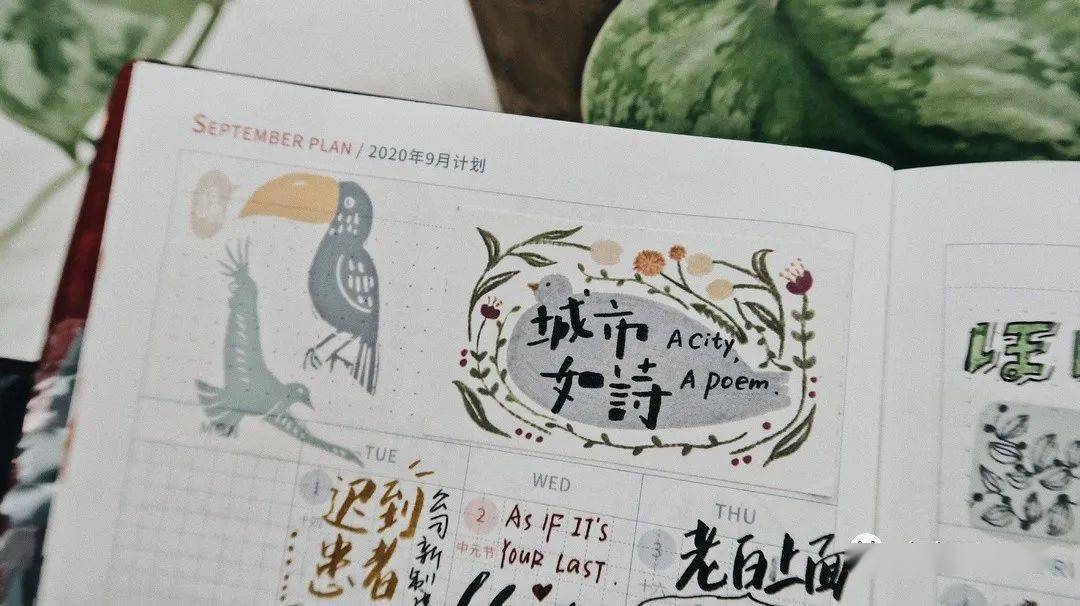 SEPTEMBER PLAN / 2020年9月计划
城市 A city,
如詩 A poem.
TUE
WED
THU
1
迟到
患者
公司新制
2
中元节
AS IF IT'S
YOUR LAST.
3
老白上面